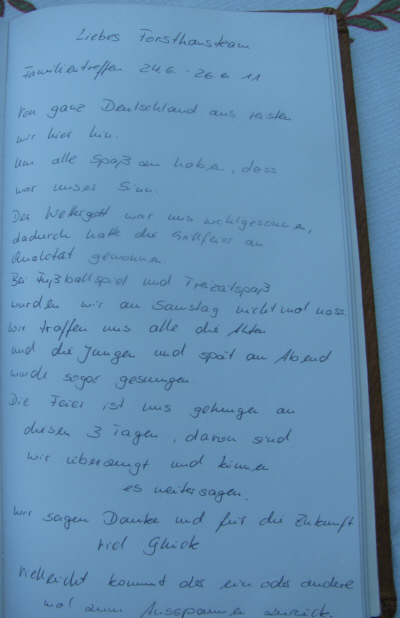 Liebes Forsthausteam
Familientreffen 24.6. - 26.6. 11
Von ganz Deutschland aus reisten
wir hier hin.
Um alle Spaß zu haben, das
war unser Sinn.
Der Wettergott war uns wohlgesonnen,
dadurch hatte die Grillfeier an
Qualität gewonnen.
Bei Fußballspiel und Freizeitspaß
wurden wir am Samstag nicht mal nass.
Wir trafen uns alle die Alten
und die Jungen und spät am Abend
wurde sogar gesungen
Die Feier ist uns gelungen an
diesen 3 Tagen, davon sind
wir überzeugt und können
es weitersagen.
Wir sagen Danke und für die Zukunft
viel Glück
vielleicht kommt der ein oder andere
mal zum Ausspannen zurück.